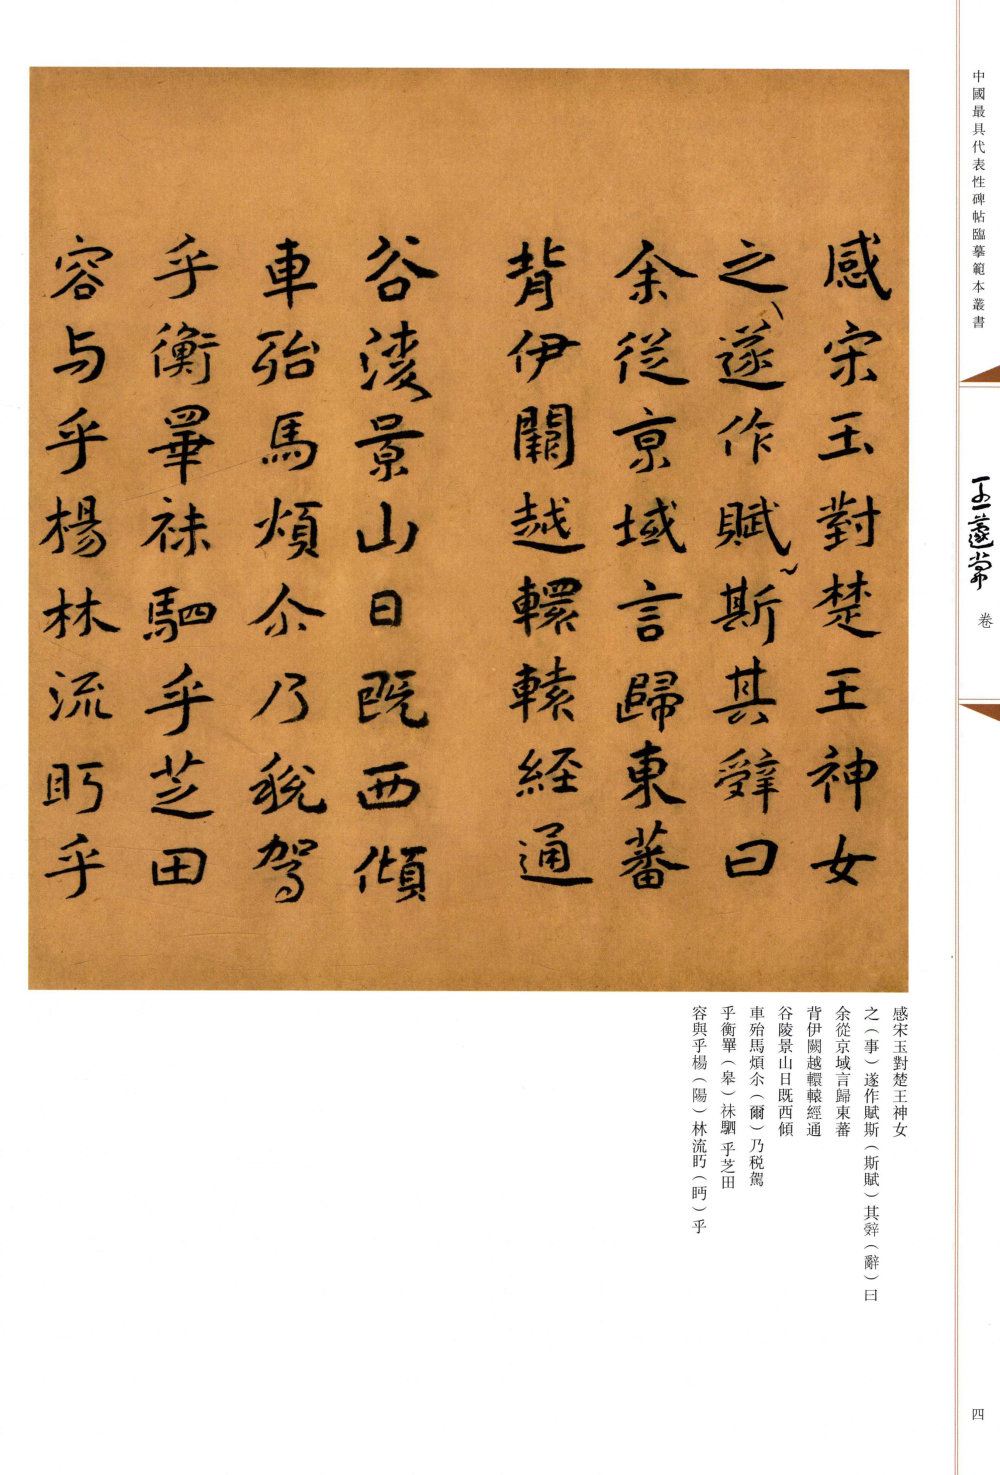 中國最具代表性碑帖臨摹範本叢書
王蘧常
卷
感宋玉對楚王神女
之遂作賦斯其辤曰
余從京域言歸東蕃
背伊闕越轘轅經通
谷陵景山日既西傾
車殆馬煩尒乃稅駕
乎衡睪袜駟乎芝田
容与乎楊林流眄乎
感宋玉對楚王神女
之（事）遂作賦斯（斯賦）其辤（辭）曰
余從京域言歸東蕃
背伊闕越轘轅經通
谷陵景山日既西傾
車殆馬煩尒（爾）乃税駕
乎衡睪（皋）袜駟乎芝田
容與乎楊（陽）林流眄（眄）乎
四